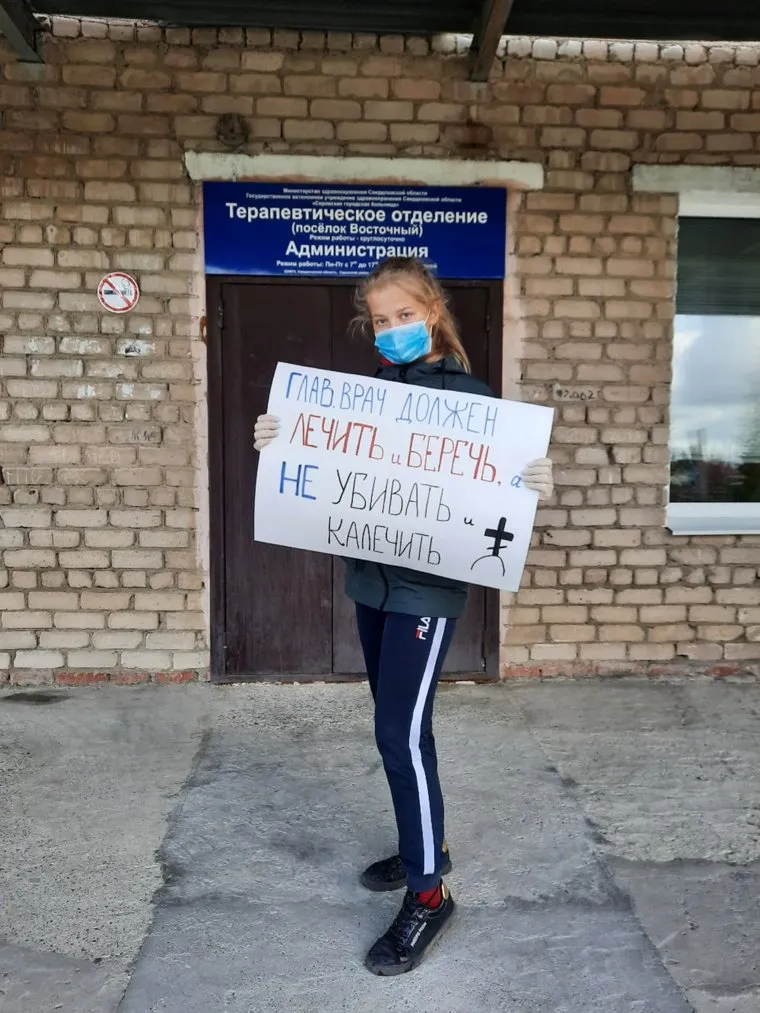 Министерство здравоохранения Свердловской области
Государственное автономное учреждение здравоохранения Свердловской области
«Серовская городская больница»
Терапевтическое отделение
(посёлок Восточный)
Режим работы - круглосуточно
Администрация
Режим работы: Пн-Пт с 7
ГЛАВ. ВРАЧ ДОЛЖЕН
ЛЕЧИТЬ и БЕРЕЧЬ, а
НЕ УБИВАТЬ и
КАЛЕЧИТЬ
FILA